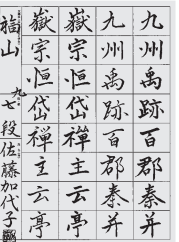 九州禹跡百郡秦并
九州禹跡百郡秦并
嶽宗恒岱禪主云亭
嶽宗恒岱禪主云亭
福山 九七段 佐藤加代子